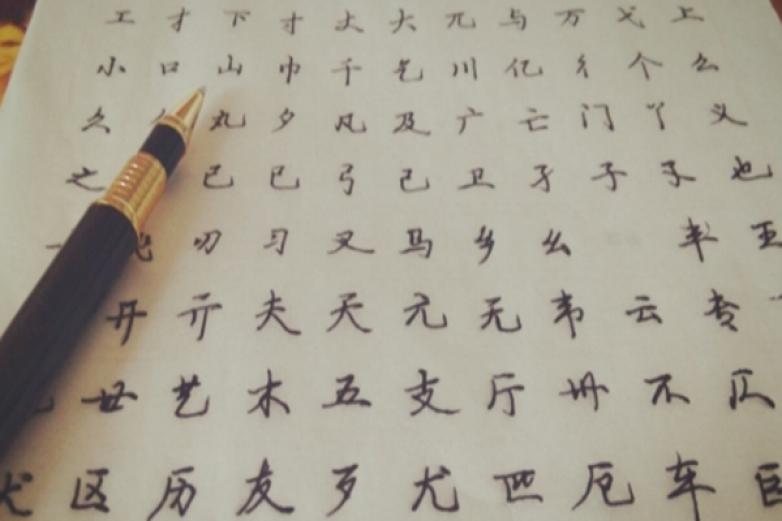 工 才 下 寸 丈 大 兀 与 万 弋 上
小 口 山 巾 千 乞 川 亿 彳 个 么
久 丸 夕 凡 及 广 亡 门 丫 义
之 己 巳 弓 己 卫 孑 子 孓 也
刃 习 叉 马 乡 幺 丰 王
开 亓 夫 天 元 无 韦 云 专
廿 艺 木 五 支 厅 卅 不 仄
犬 区 历 友 歹 尤 匹 厄 车 巨